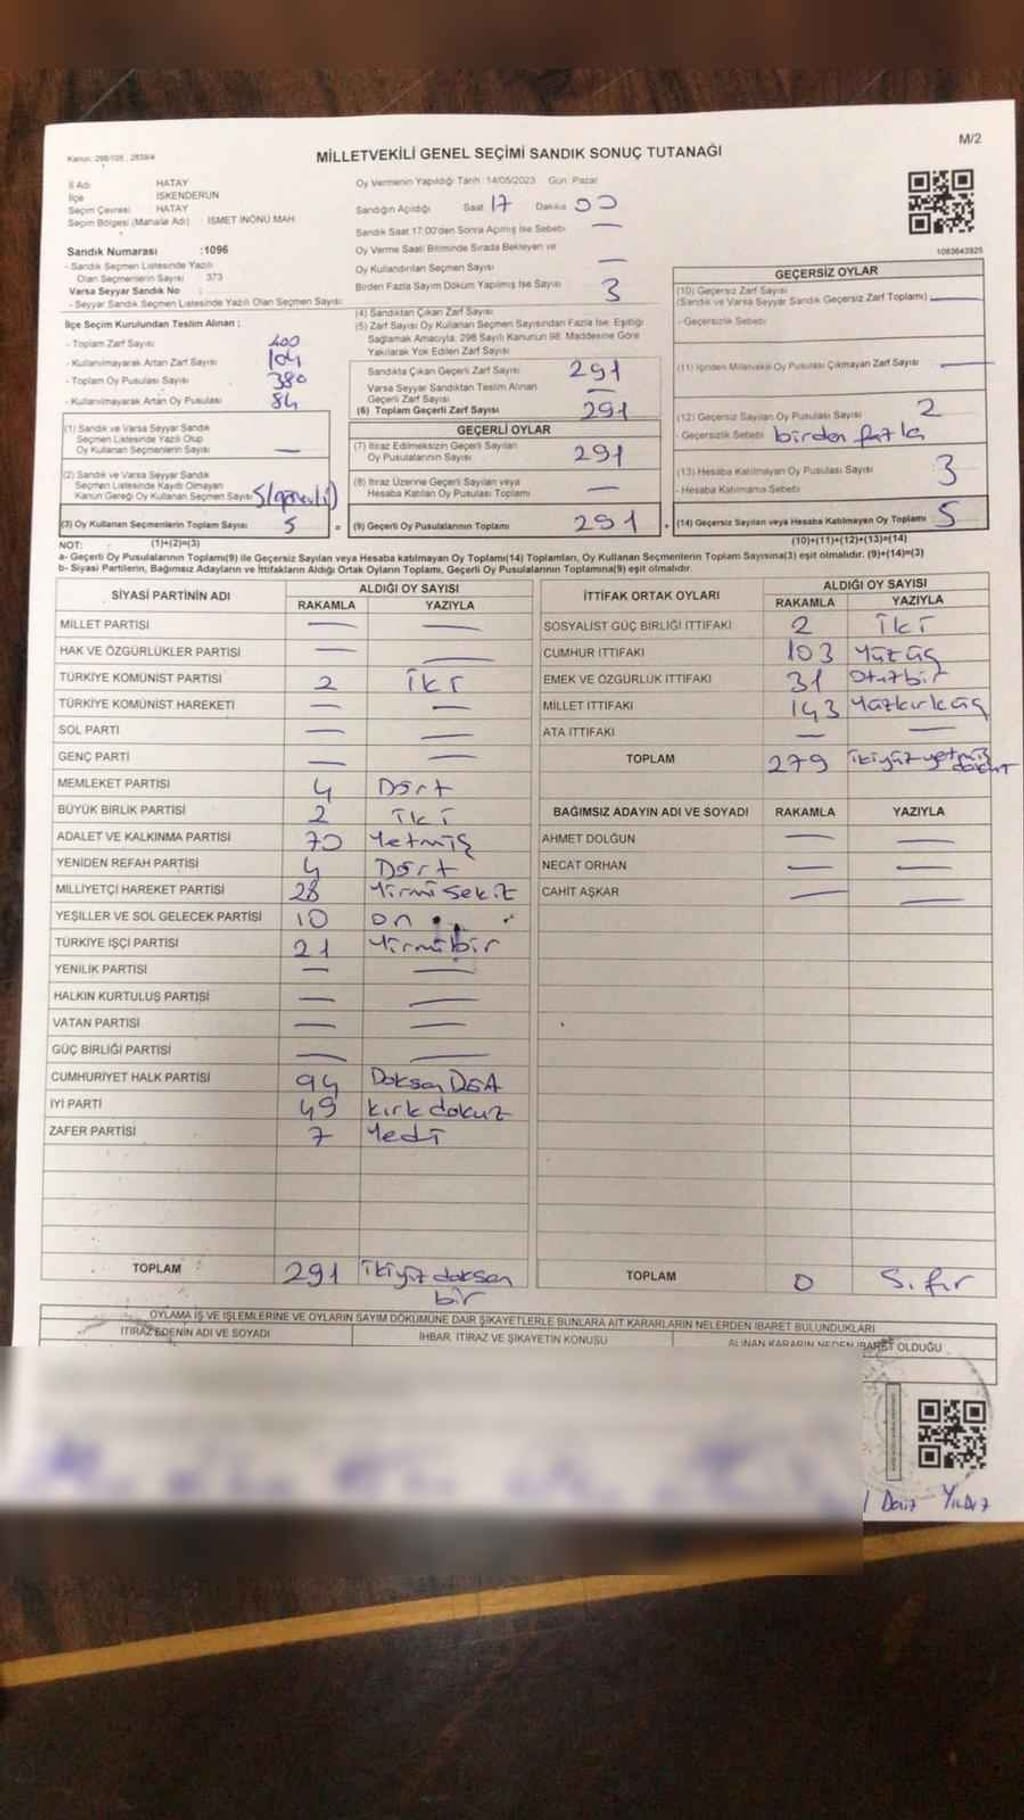 M/2
Kanun: 298/105 , 2839/4
MİLLETVEKİLİ GENEL SEÇİMİ SANDIK SONUÇ TUTANAĞI
İl Adı HATAY
İlçe İSKENDERUN
Seçim Çevresi HATAY
Seçim Bölgesi (Mahalle Adı) : İSMET İNÖNÜ MAH
Sandık Numarası :1096
- Sandık Seçmen Listesinde Yazılı
Olan Seçmenlerin Sayısı 373
Varsa Seyyar Sandık No :
- Seyyar Sandık Seçmen Listesinde Yazılı Olan Seçmen Sayısı:
İlçe Seçim Kurulundan Teslim Alınan :
- Toplam Zarf Sayısı 400
- Kullanılmayarak Artan Zarf Sayısı 104
- Toplam Oy Pusulası Sayısı 380
- Kullanılmayarak Artan Oy Pusulası 84
(1) Sandık ve Varsa Seyyar Sandık
Seçmen Listesinde Yazılı Olup
Oy Kullanan Seçmenlerin Sayısı —
(2) Sandık ve Varsa Seyyar Sandık
Seçmen Listesinde Kayıtlı Olmayan
Kanun Gereği Oy Kullanan Seçmen Sayısı 5 (görevli)
(3) Oy Kullanan Seçmenlerin Toplam Sayısı 5
Oy Vermenin Yapıldığı Tarih :14/05/2023 Gün: Pazar
Sandığın Açıldığı Saat 17 Dakika 00
Sandık Saat 17:00'den Sonra Açılmış İse Sebebi —
Oy Verme Saati Bitiminde Sırada Bekleyen ve
Oy Kullandırılan Seçmen Sayısı —
Birden Fazla Sayım Döküm Yapılmış İse Sayısı 3
(4) Sandıktan Çıkan Zarf Sayısı
(5) Zarf Sayısı Oy Kullanan Seçmen Sayısından Fazla İse, Eşitliği
Sağlamak Amacıyla, 298 Sayılı Kanunun 98. Maddesine Göre
Yakılarak Yok Edilen Zarf Sayısı
Sandıkta Çıkan Geçerli Zarf Sayısı 291
Varsa Seyyar Sandıktan Teslim Alınan
Geçerli Zarf Sayısı —
(6) Toplam Geçerli Zarf Sayısı 291
GEÇERLİ OYLAR
(7) İtiraz Edilmeksizin Geçerli Sayılan
Oy Pusulalarının Sayısı 291
(8) İtiraz Üzerine Geçerli Sayılan veya
Hesaba Katılan Oy Pusulası Toplamı —
= (9) Geçerli Oy Pusulalarının Toplamı 291
1083643925
GEÇERSİZ OYLAR
(10) Geçersiz Zarf Sayısı
(Sandık ve Varsa Seyyar Sandık Geçersiz Zarf Toplamı) —
- Geçersizlik Sebebi
(11) İçinden Milletvekili Oy Pusulası Çıkmayan Zarf Sayısı —
(12) Geçersiz Sayılan Oy Pusulası Sayısı 2
- Geçersizlik Sebebi birden fazla
(13) Hesaba Katılmayan Oy Pusulası Sayısı 3
- Hesaba Katılmama Sebebi
+ (14) Geçersiz Sayılan veya Hesaba Katılmayan Oy Toplamı 5
NOT: (1)+(2)=(3) (10)+(11)+(12)+(13)=(14)
a- Geçerli Oy Pusulalarının Toplamı(9) ile Geçersiz Sayılan veya Hesaba katılmayan Oy Toplamı(14) Toplamları, Oy Kullanan Seçmenlerin Toplam Sayısına(3) eşit olmalıdır. (9)+(14)=(3)
b- Siyasi Partilerin, Bağımsız Adayların ve İttifakların Aldığı Ortak Oyların Toplamı, Geçerli Oy Pusulalarının Toplamına(9) eşit olmalıdır.
SİYASİ PARTİNİN ADI ALDIĞI OY SAYISI
RAKAMLA YAZIYLA
MİLLET PARTİSİ — —
HAK VE ÖZGÜRLÜKLER PARTİSİ — —
TÜRKİYE KOMÜNİST PARTİSİ 2 İki
TÜRKİYE KOMÜNİST HAREKETİ — —
SOL PARTİ — —
GENÇ PARTİ — —
MEMLEKET PARTİSİ 4 Dört
BÜYÜK BİRLİK PARTİSİ 2 İki
ADALET VE KALKINMA PARTİSİ 70 Yetmiş
YENİDEN REFAH PARTİSİ 4 Dört
MİLLİYETÇİ HAREKET PARTİSİ 28 Yirmi sekiz
YEŞİLLER VE SOL GELECEK PARTİSİ 10 on
TÜRKİYE İŞÇİ PARTİSİ 21 Yirmibir
YENİLİK PARTİSİ — —
HALKIN KURTULUŞ PARTİSİ — —
VATAN PARTİSİ — —
GÜÇ BİRLİĞİ PARTİSİ — —
CUMHURİYET HALK PARTİSİ 94 Doksan
İYİ PARTİ 49 kırk dokuz
ZAFER PARTİSİ 7 Yedi
TOPLAM 291 ikiyüz doksan
bir
İTTİFAK ORTAK OYLARI ALDIĞI OY SAYISI
RAKAMLA YAZIYLA
SOSYALİST GÜÇ BİRLİĞİ İTTİFAKI 2 İki
CUMHUR İTTİFAKI 103 Yüzüç
EMEK VE ÖZGÜRLÜK İTTİFAKI 31 Otuzbir
MİLLET İTTİFAKI 143 Yüzkırküç
ATA İTTİFAKI — —
TOPLAM 279 ikiyüz yetmiş
dokuz
BAĞIMSIZ ADAYIN ADI VE SOYADI RAKAMLA YAZIYLA
AHMET DOLĞUN — —
NECAT ORHAN — —
CAHİT AŞKAR — —
TOPLAM 0 Sıfır
OYLAMA İŞ VE İŞLEMLERİNE VE OYLARIN SAYIM DÖKÜMÜNE DAİR ŞİKAYETLERLE BUNLARA AİT KARARLARIN NELERDEN İBARET BULUNDUKLARI
İTİRAZ EDENİN ADI VE SOYADI İHBAR, İTİRAZ VE ŞİKAYETİN KONUSU ALINAN KARARIN NEDEN İBARET OLDUĞU
Yıldız